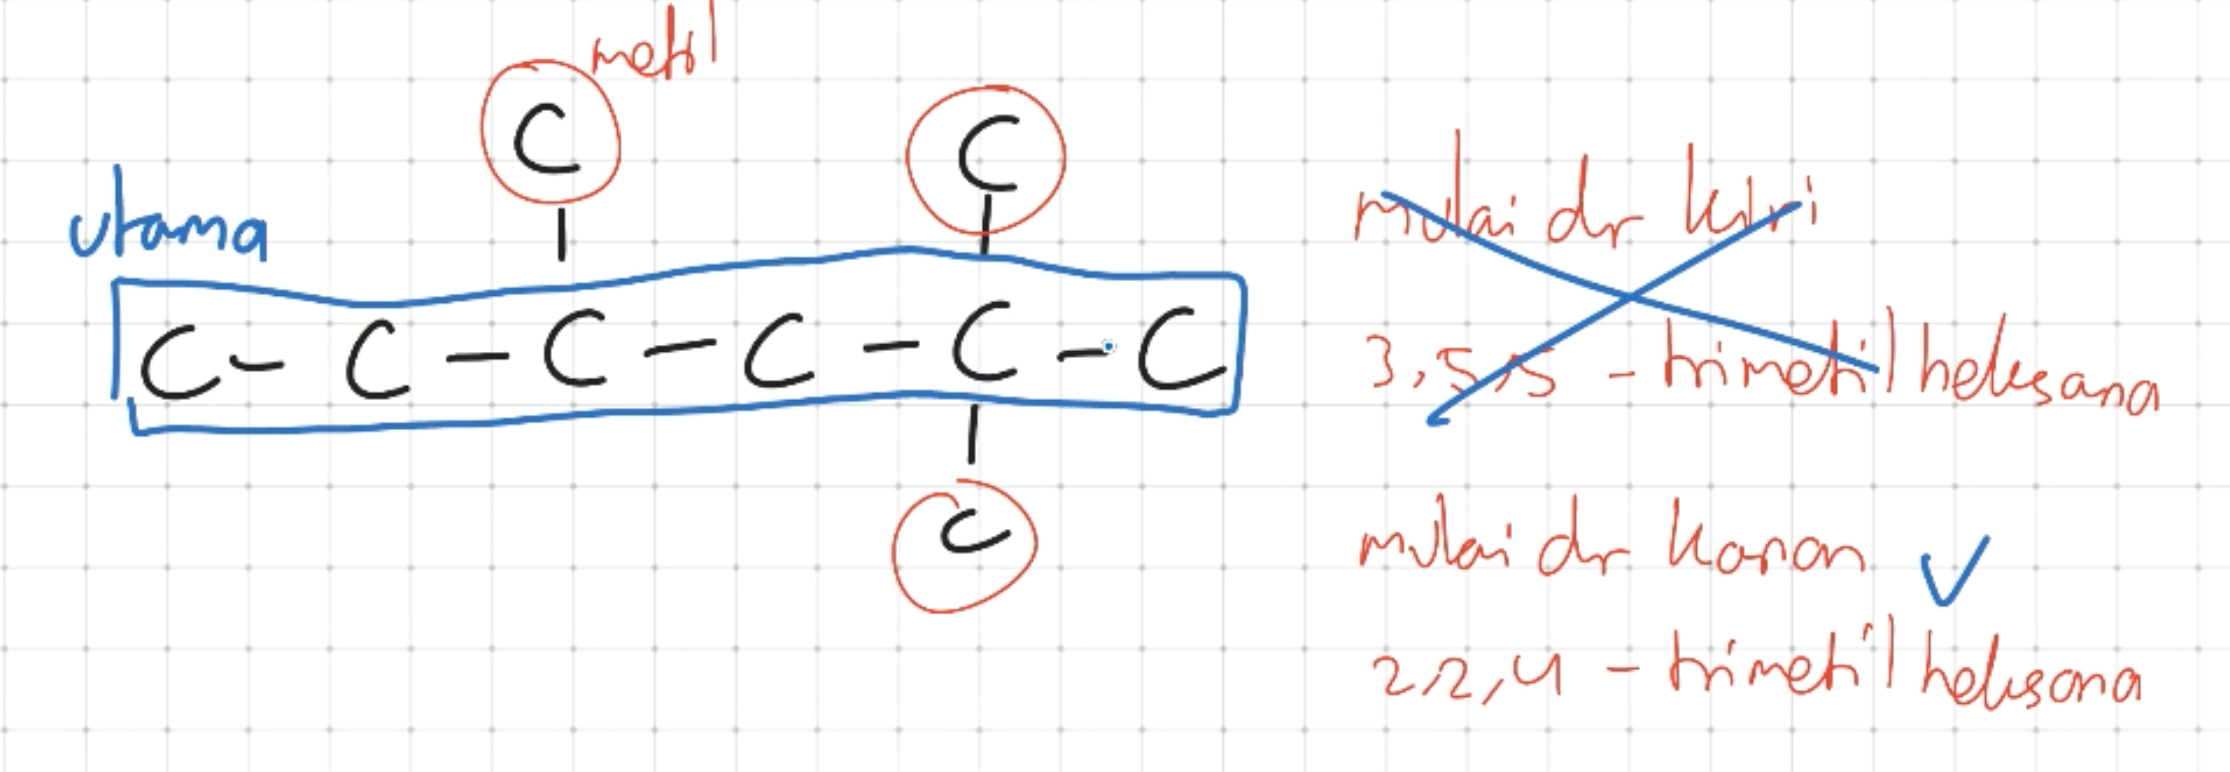 metil
C C
utama
C - C - C - C - C - C
C
mulai dr kiri
3,5,5 - trimetil heksana
mulai dr kanan ✓
2,2,4 - trimetil heksana